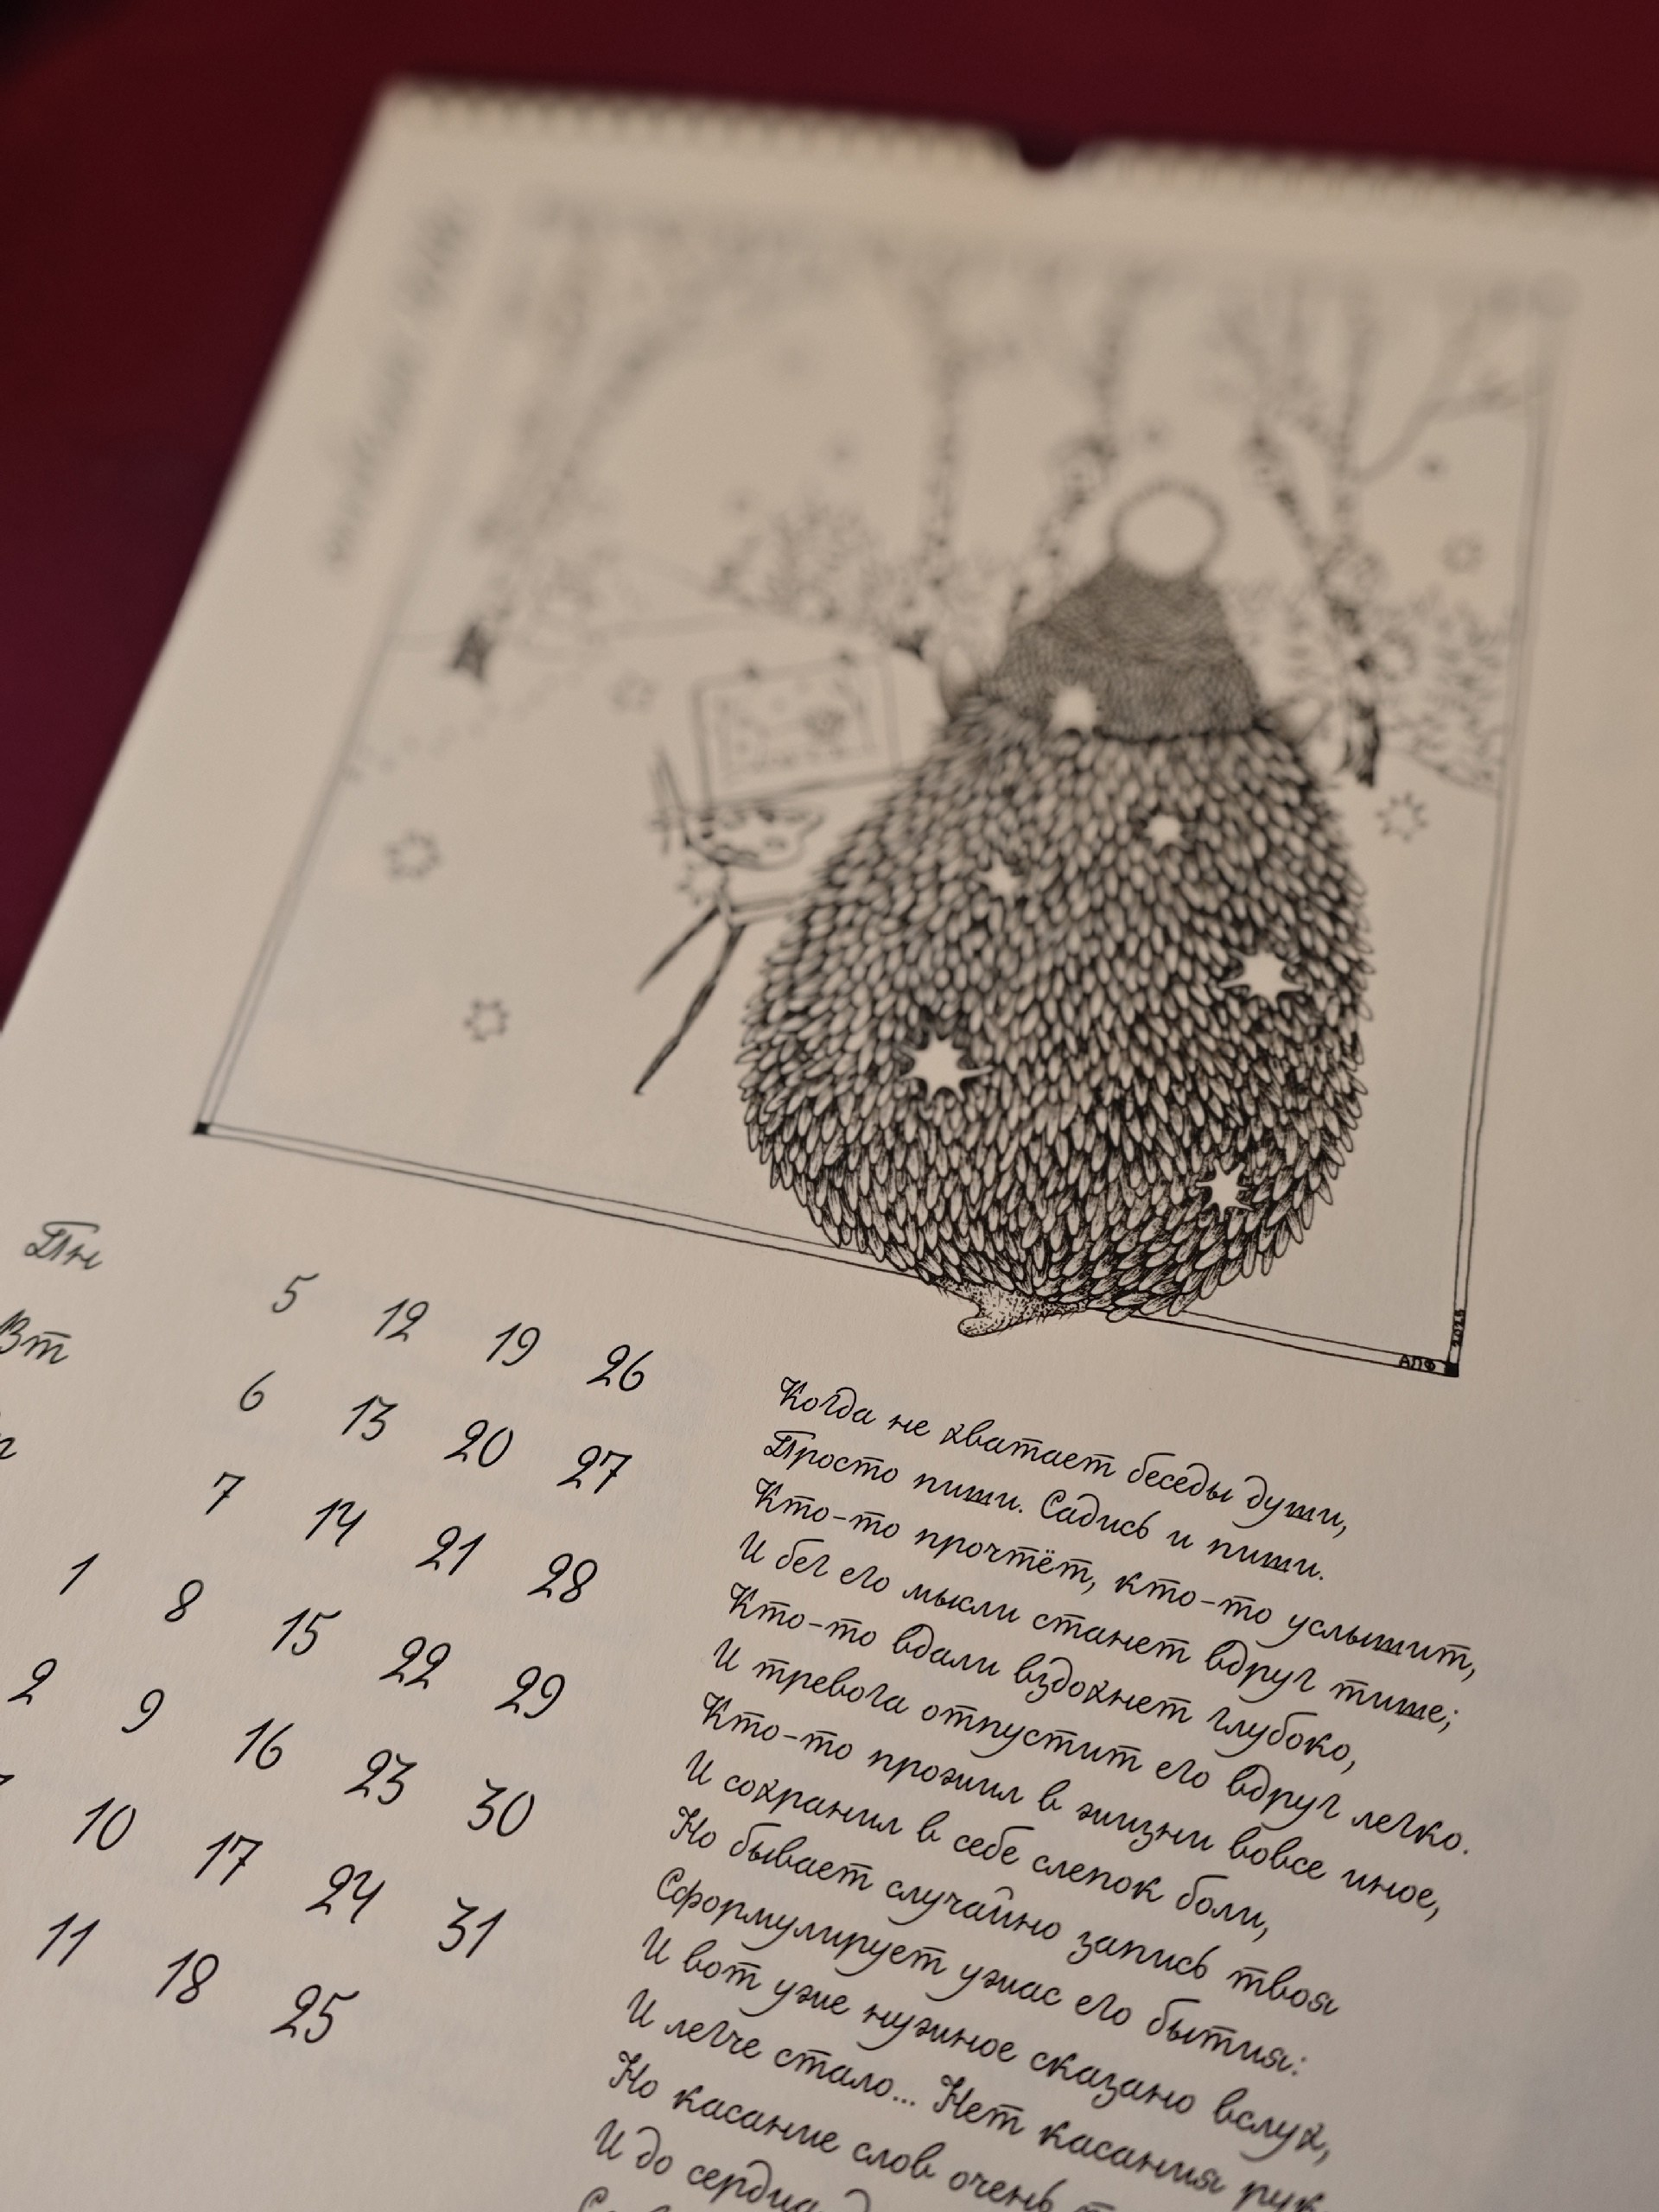 АПФ
Пн 5 12 19 26
Вт 6 13 20 27
7 14 21 28
1 8 15 22 29
2 9 16 23 30
10 17 24 31
11 18 25
Когда не хватает беседы души,
Просто пиши. Садись и пиши.
Кто-то прочтёт, кто-то услышит,
И бег его мысли станет вдруг тише;
Кто-то вдали вздохнет глубоко,
И тревога отпустит его вдруг легко.
Кто-то прожил в жизни вовсе иное,
И сохранил в себе слепок боли,
Но бывает случайно запись твоя
Сформулирует ужас его бытия:
И вот уже нужное сказано вслух,
И легче стало... Нет касания рук,
Но касание слов очень
И до сердца